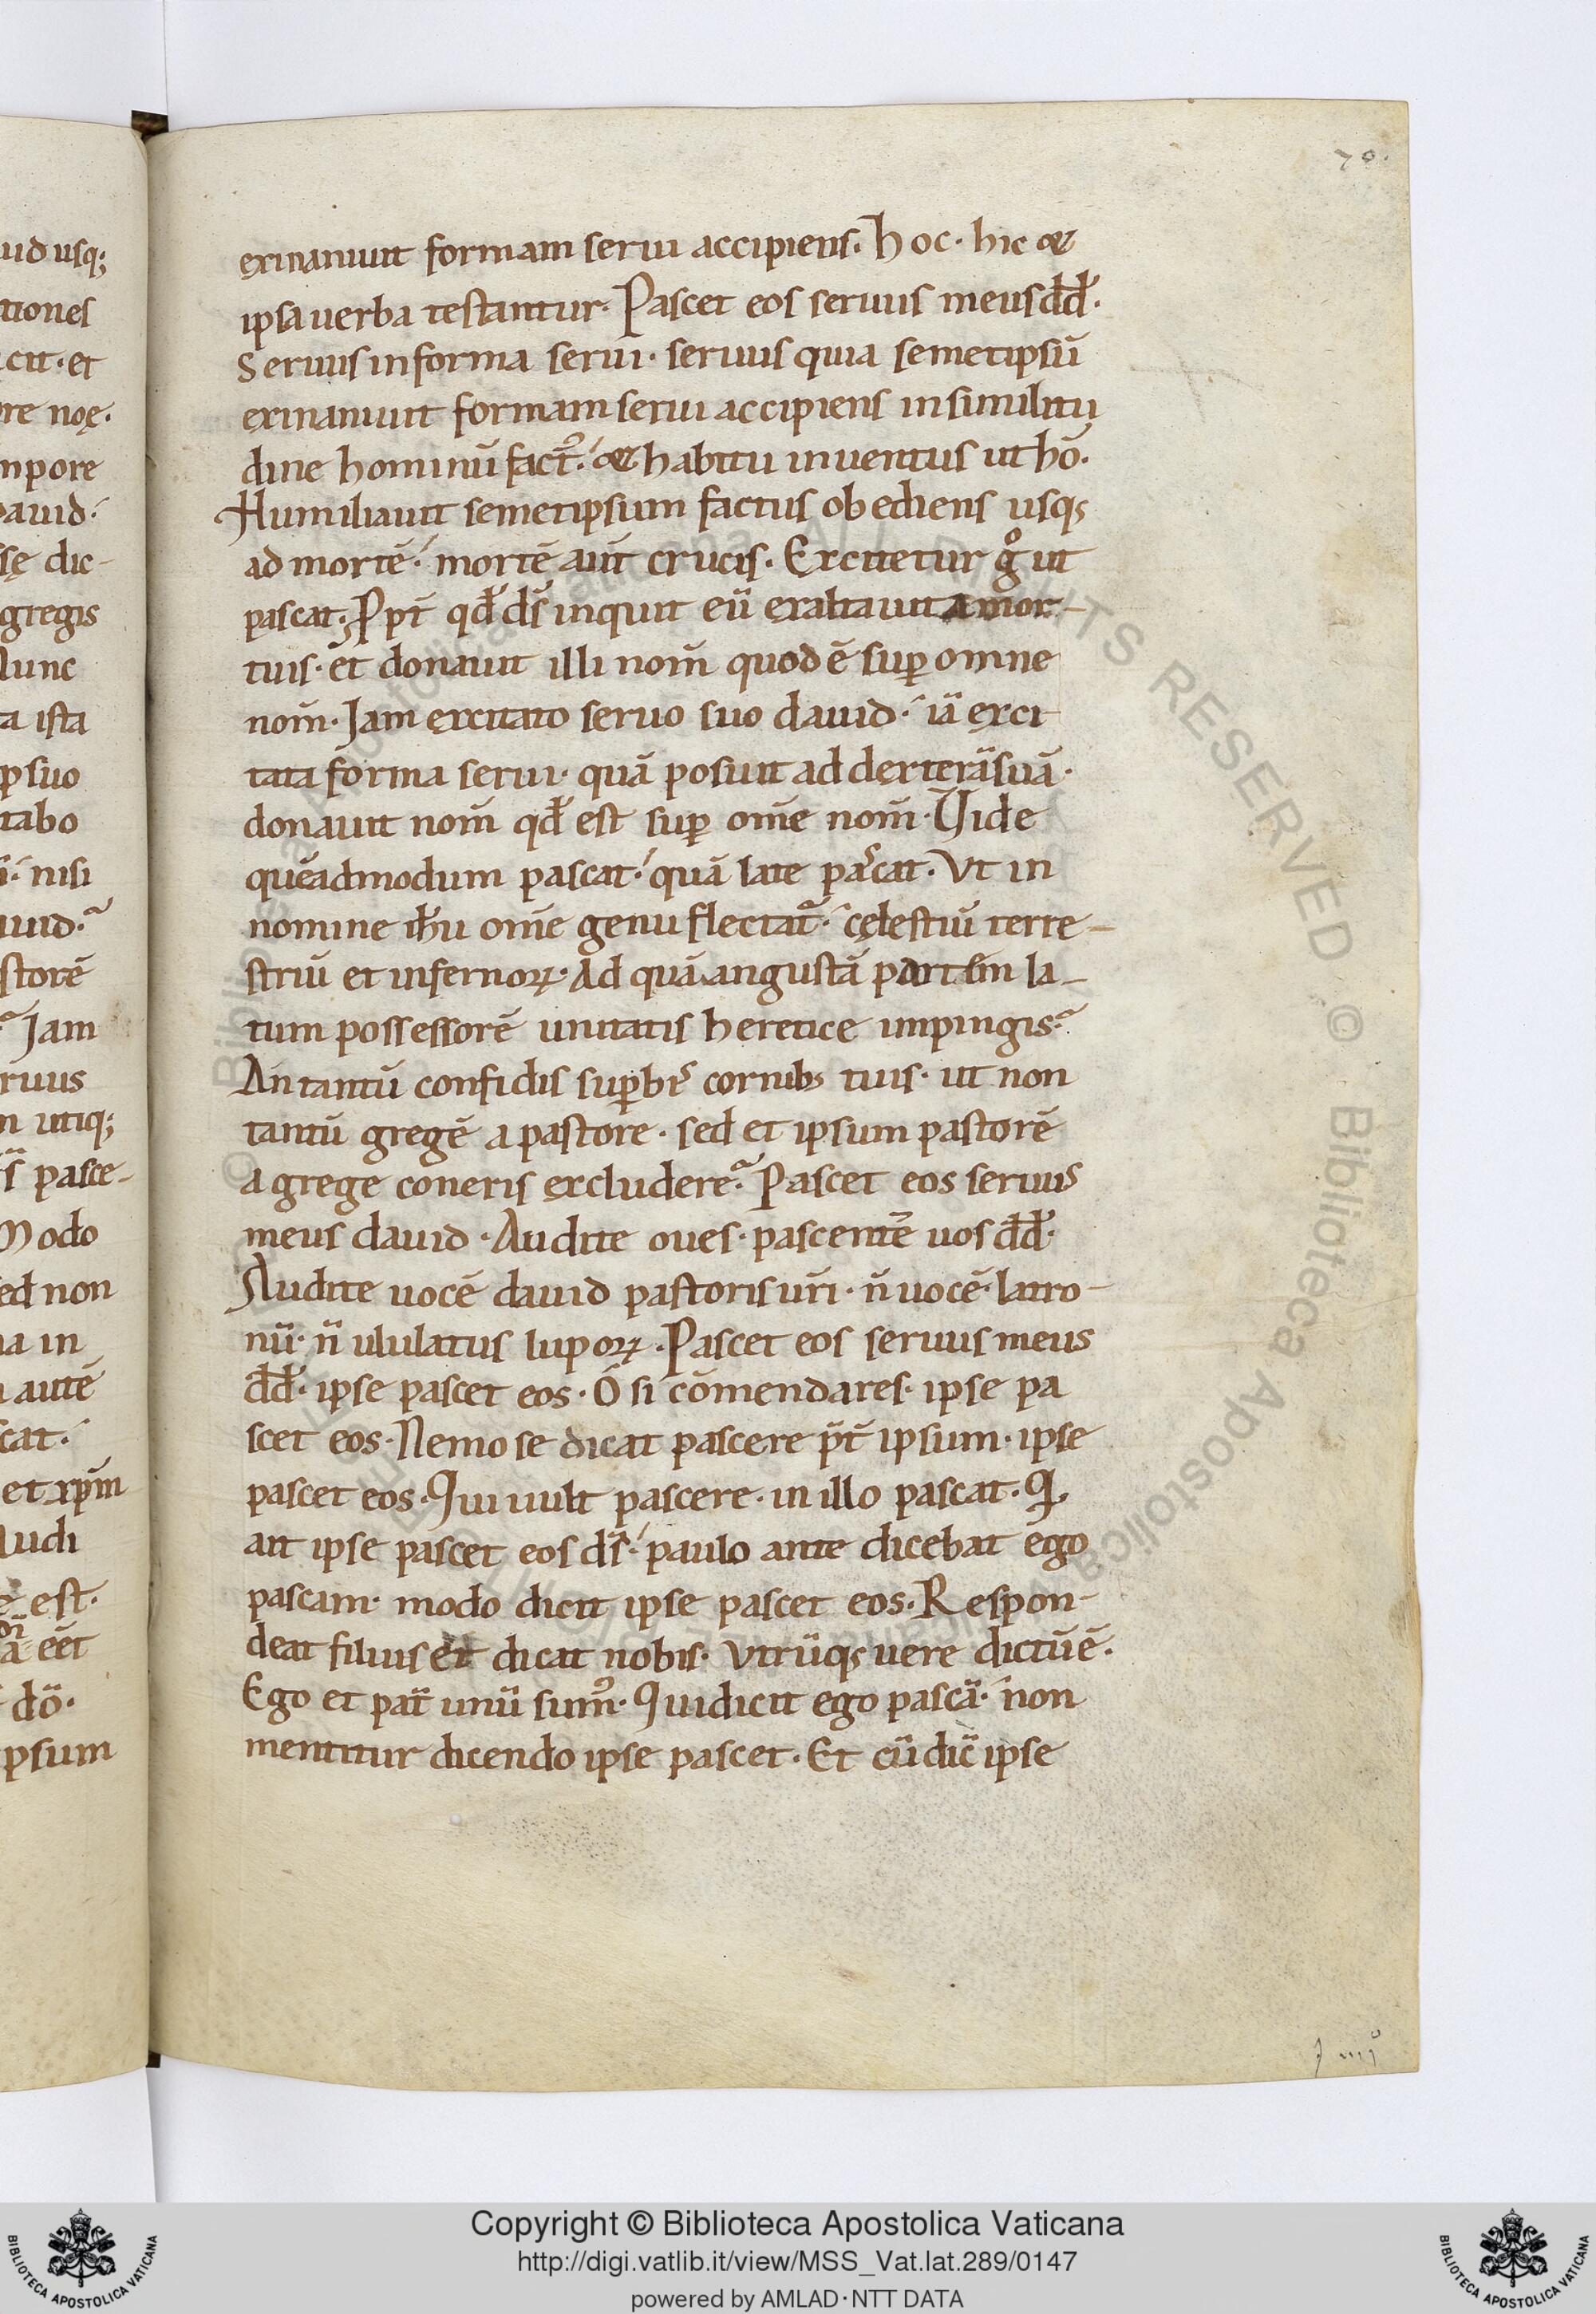 70.
exinaniuit formam serui accipiens. hoc. hic et
ipsa uerba testantur. Pascet eos seruus meus dd̄.
Seruus in forma serui. seruus quia semetipsū
exinaniuit formam serui accipiens in similitu
dine hominū fact᷒. et habitu inuentus ut hō.
Humiliauit semetipsum factus obediens usq;
ad mortē. mortē aūt crucis. Excitetur gͦ ut
pascat. Ppt̄ qd̄ ds̄ inquit eū exaltauit a mor-
tuis. et donauit illi nom̄ quod ē sup̄ omne
nom̄. Jam excitato seruo suo dauid. iā exci
tata forma serui. quā posuit ad dexterā suā.
donauit nom̄ qd̄ est sup̄ om̄e nom̄. Uide
quēadmodum pascat. quā late pascat. Vt in
nomine ih̄u om̄e genu flectat᷑. cęlestiū terre-
striū et infernoꝝ. Ad quā angustā partem la-
tum possessorē unitatis heretice impingis.
An tantū confidis sup̄bis cornib; tuis. ut non
tantū gregē a pastore. sed et ipsum pastorē
a grege coneris excludere. Pascet eos seruus
meus dauid. Audite oues. pascentē uos dd̄.
Audite uocē dauid pastoris ur̄i. n̄ uocē. latro-
nū. n̄ ululatus lupoꝝ. Pascet eos seruus meus
dd̄. ipse pascet eos. O si cōmendares. ipse pa
scet eos. Nemo se dicat pascere p̄t ipsum. ipse
pascet eos. Qui uult pascere. in illo pascat. Q,
ait ipse pascet eos ds̄. paulo ante dicebat ego
pascam. modo dicit ipse pascet eos. Respon-
deat filius et dicat nobis. Vtrūq; uere dictū ē.
Ego et pat̄ unū sum᷒. Qui dicit ego pascā. non
mentitur dicendo ipse pascet. Et cū dic̄ ipse
uid usq;
tiones
cit. et
re noę.
mpore
auid.
sę dic-
gregis
Nunc
ta ista
p̄ suo
tabo
nisi
uid.
storē
Jam
ruus
m utiq;
pasce-
Modo
ed non
na in
autē
cat.
et xp̄m
Audi
est.
eēt
dō.
psum
© Biblioteca Apostolica Vaticana ALL RIGHTS RESERVED © Biblioteca Apostolica Vaticana
Copyright © Biblioteca Apostolica Vaticana
http://digi.vatlib.it/view/MSS_Vat.lat.289/0147
powered by AMLAD·NTT DATA
BIBLIOTECA APOSTOLICA VATICANA
BIBLIOTECA APOSTOLICA VATICANA